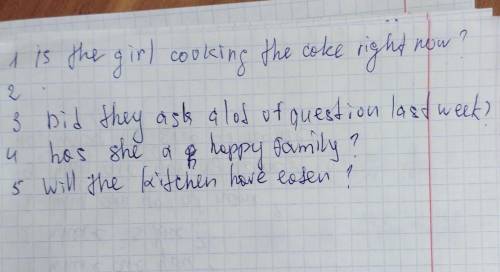 1 is the girl cooking the coke right now?
2 .
3 Did they ask a lot of question last week?
4 has she a happy family?
5 will the kitchen have eaten?